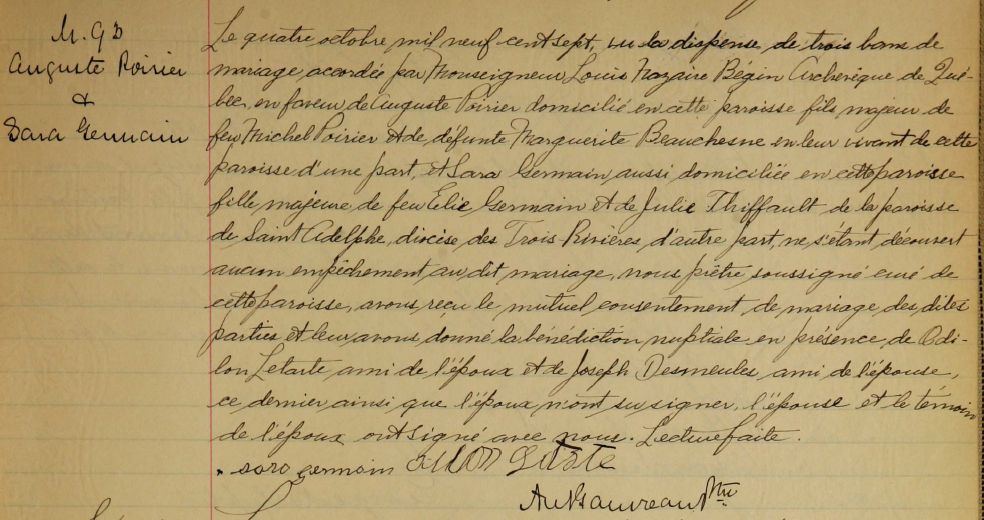 M. 93
Auguste Poirier
&
Sara Germain
Le quatre octobre mil neuf cent sept, vu la dispense de trois bans de
mariage accordée par Monseigneur Louis Nazaire Bégin Archevêque de Qué-
bec, en faveur de Auguste Poirier domicilié en cette paroisse fils majeur de
feu Michel Poirier et de défunte Marguerite Beauchesne en leur vivant de cette
paroisse d'une part, et Sara Germain aussi domiciliée en cette paroisse
fille majeure de feu Elie Germain et de Julie Thiffault de la paroisse
de Saint Adelphe, diocèse des Trois Rivières, d'autre part, ne s'étant découvert
aucun empêchement au dit mariage, nous prêtre soussigné curé de
cette paroisse, avons reçu le mutuel consentement de mariage des dites
parties et leur avons donné la bénédiction nuptiale en présence de Odi-
lon Letarte ami de l'époux et de Joseph Desmeules ami de l'épouse,
ce dernier ainsi que l'époux n'ont su signer, l'épouse et le témoin
de l'époux ont signé avec nous. Lecture faite.
sara germain Odilon Letarte
Gauvreau Ptre